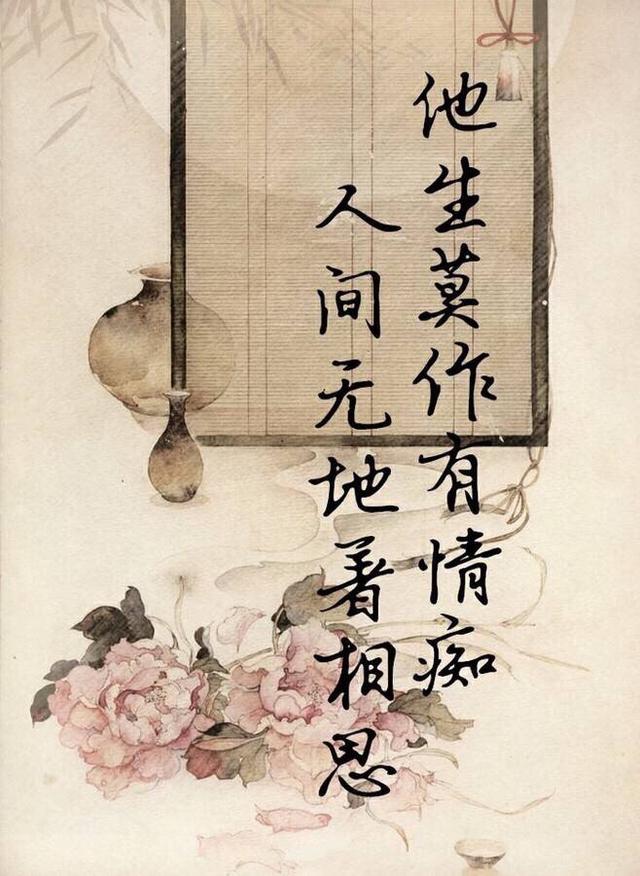 他生莫作有情痴
人间无地著相思